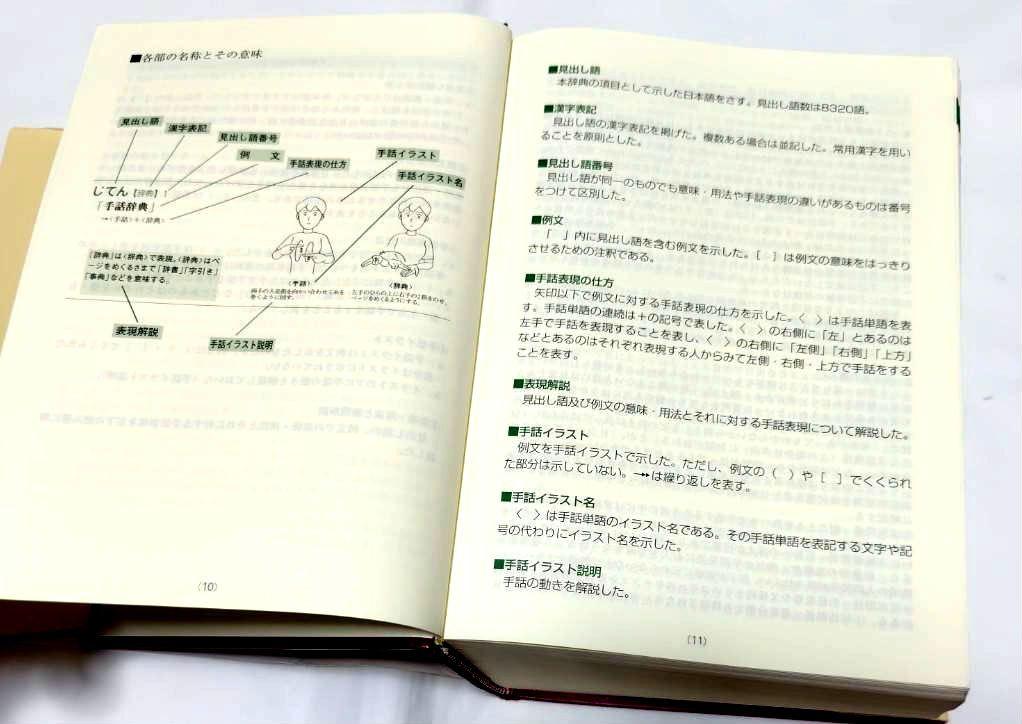 ■各部の名称とその意味
見出し語
漢字表記
見出し語番号
例　文
手話表現の仕方
手話イラスト
手話イラスト名
じてん【辞典】1
「手話辞典」
→〈手話〉+〈辞典〉
「辞典」は〈辞典〉で表現。〈辞典〉はペ
ージをめくるさまで「辞書」「字引き」
「事典」などを意味する。
〈手話〉
両手の人差指を向かい合わせて糸を
巻くように回す。
〈辞典〉
左手のひらの上に右手の2指をのせ、
ページをめくるようにする。
表現解説
手話イラスト説明
(10)
■見出し語
本辞典の項目として示した日本語をさす。見出し語数は8320語。
■漢字表記
見出し語の漢字表記を掲げた。複数ある場合は並記した。常用漢字を用い
ることを原則とした。
■見出し語番号
見出し語が同一のものでも意味・用法や手話表現の違いがあるものは番号
をつけて区別した。
■例文
「　」内に見出し語を含む例文を示した。［　］は例文の意味をはっきり
させるための注釈である。
■手話表現の仕方
矢印以下で例文に対する手話表現の仕方を示した。〈　〉は手話単語を表
す。手話単語の連続は＋の記号で表した。〈　〉の右側に「左」とあるのは
左手で手話を表現することを表し、〈　〉の右側に「左側」「右側」「上方」
などとあるのはそれぞれ表現する人からみて左側・右側・上方で手話をする
ことを表す。
■表現解説
見出し語及び例文の意味・用法とそれに対する手話表現について解説した。
■手話イラスト
例文を手話イラストで示した。ただし、例文の（　）や［　］でくくられ
た部分は示していない。→→は繰り返しを表す。
■手話イラスト名
〈　〉は手話単語のイラスト名である。その手話単語を表記する文字や記
号の代わりにイラスト名を示した。
■手話イラスト説明
手話の動きを解説した。
(11)